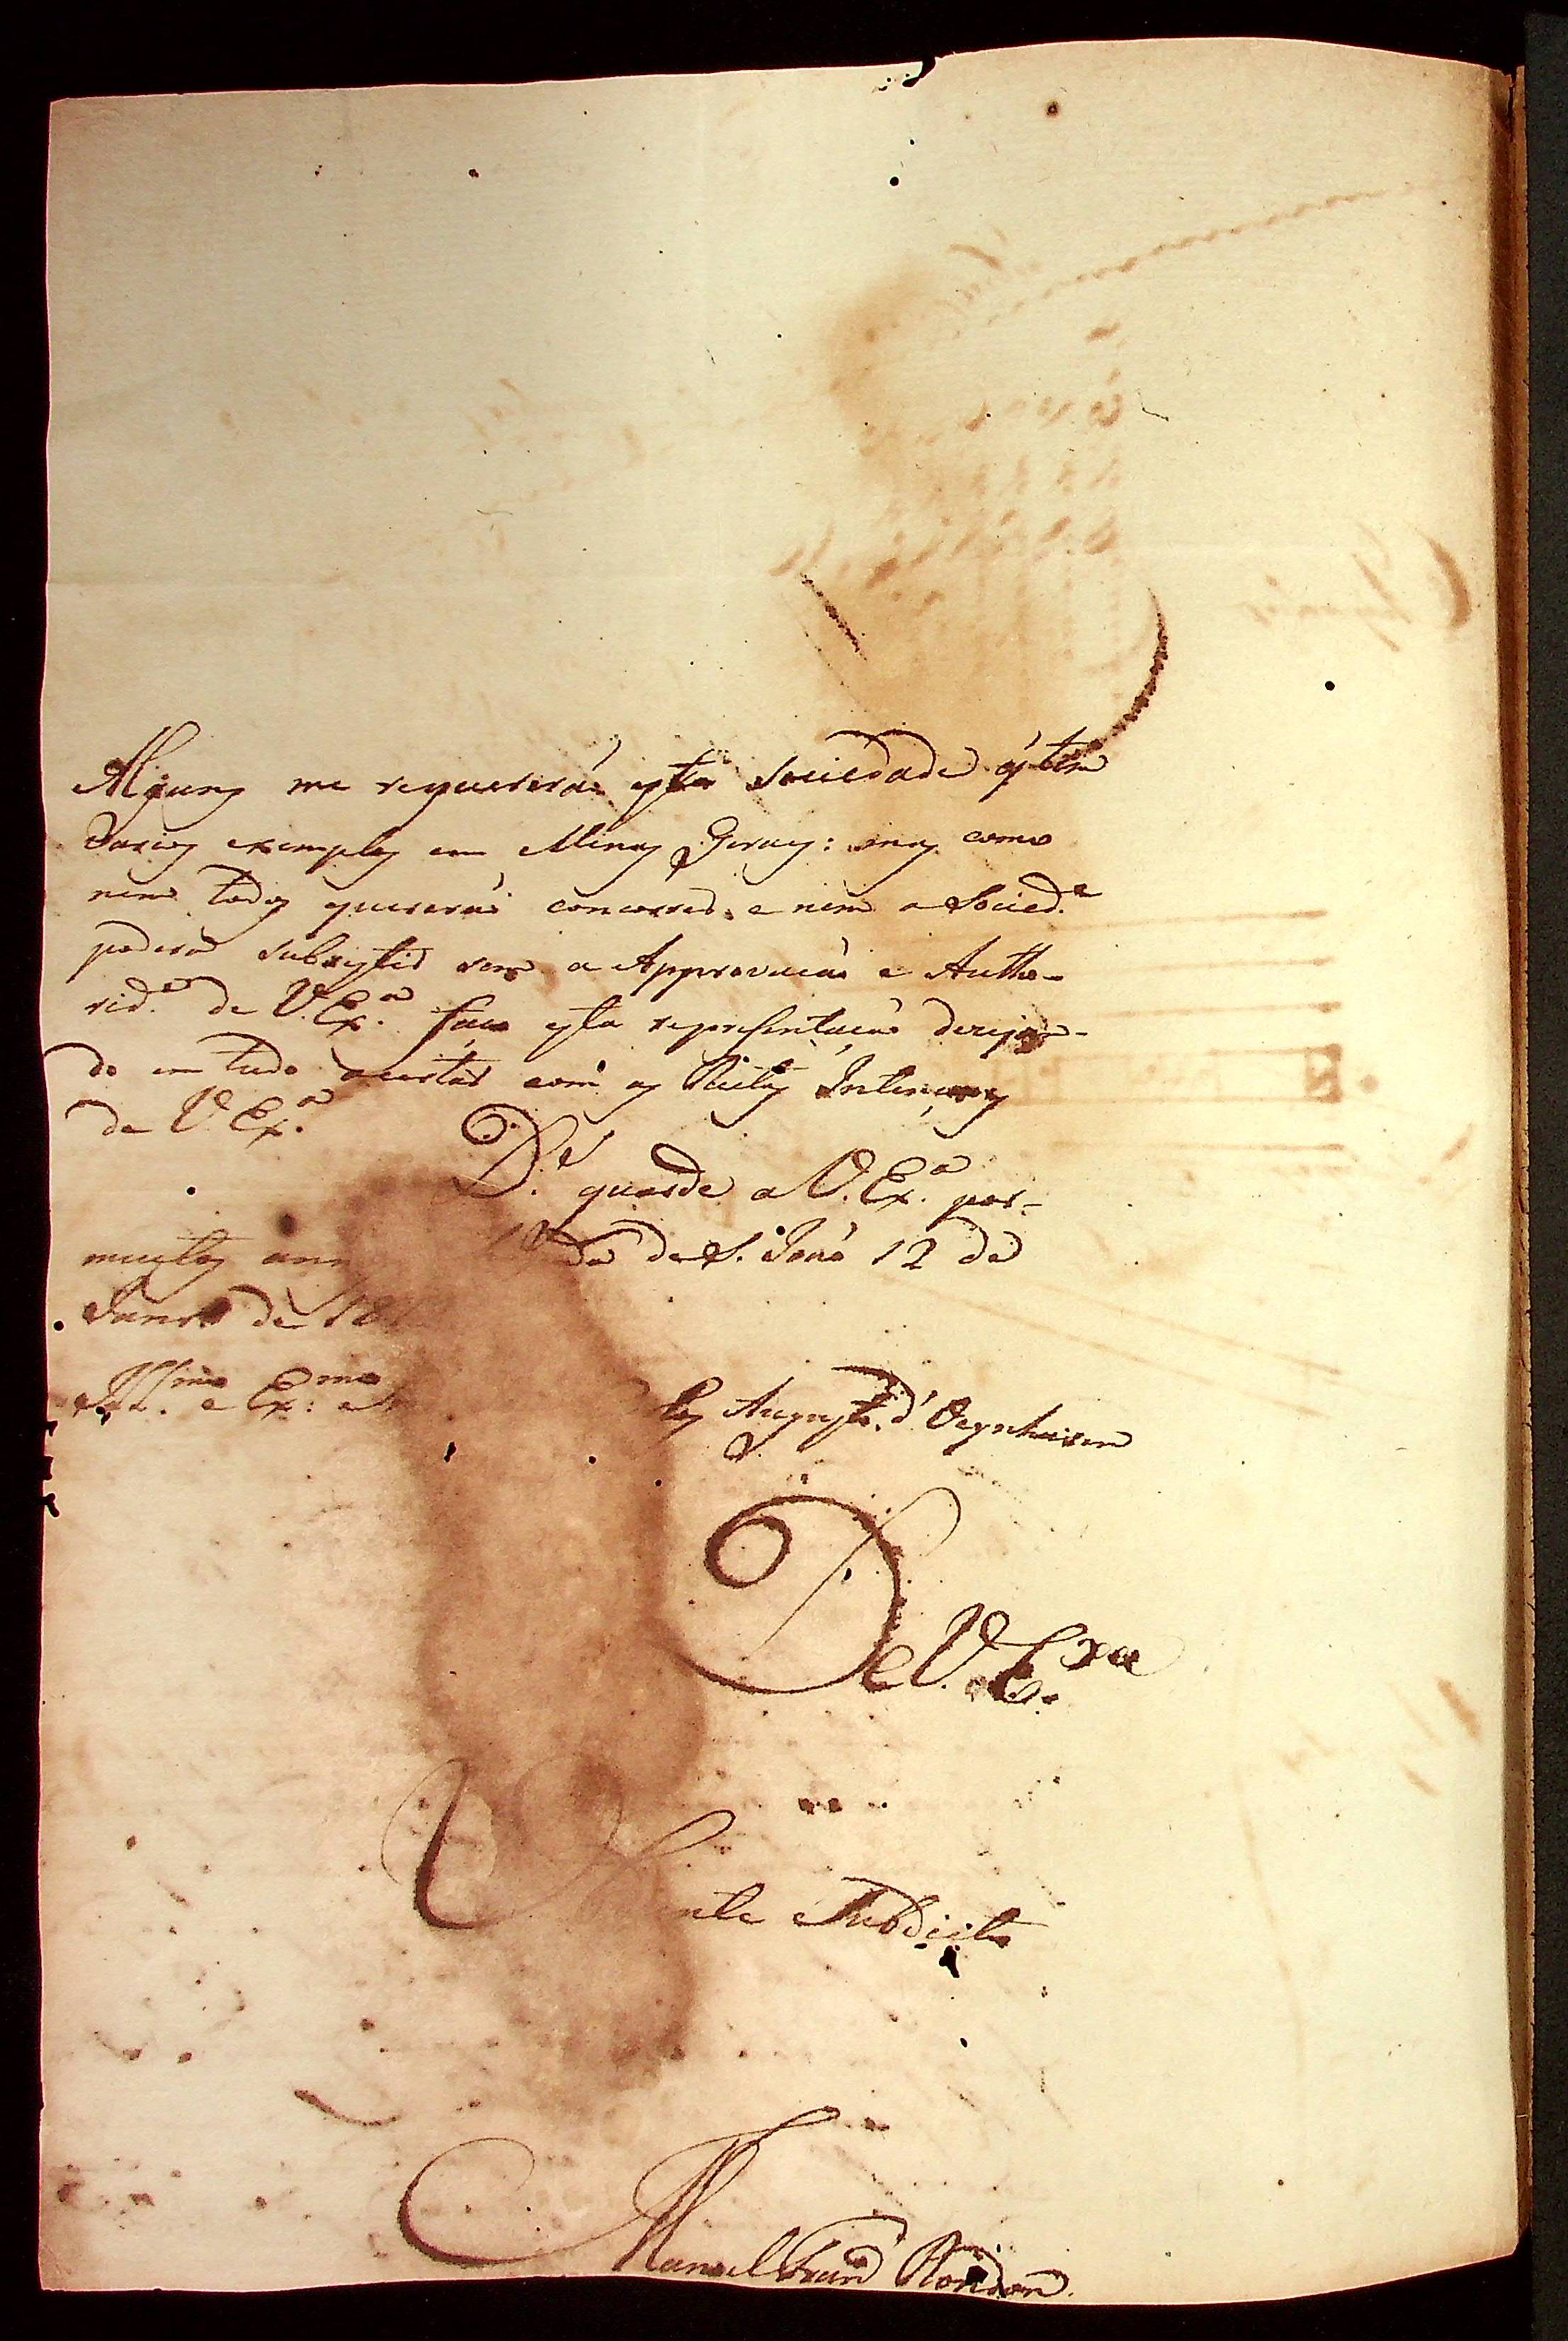 Alguns me requererão esta Sociedade q̃ tem
varios exemplos em Minas Geraes: mas como
nem todos quererão concorrer, e nem a Socied.e
poderá subsistir sem a Approvação e Autho-
rid.e de V. Ex.a faço esta representação dezejan-
do em tudo acertar com as Rectas Intençoens
de V. Ex.a
D.s guarde a V. Ex.a por
muitos de S. João 12 de
Janr.o de
Ill.mo e Ex.mo Augusto d'Oeynhausen
De V. Exa
Subdito
Manoel Rondon